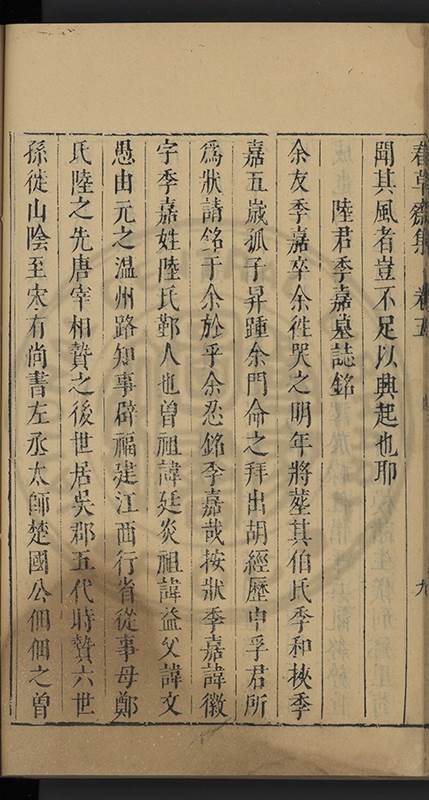 春草齋集 卷五 九
聞其風者豈不足以興起也耶
陸君季嘉墓誌銘
余友季嘉卒余徃哭之明年將塟其伯氏季和挾季
嘉五歲孤子昇踵余門命之拜出胡經歷中孚君所
爲狀請銘于余於乎余忍銘季嘉哉按狀季嘉諱徽
字季嘉姓陸氏鄞人也曾祖諱廷炎祖諱益父諱文
愚由元之温州路知事辟福建江西行省從事母鄭
氏陸之先唐宰相贄之後世居吳郡五代時贄六世
孫徙山陰至宋有尚書左丞太師楚國公佃佃之曾